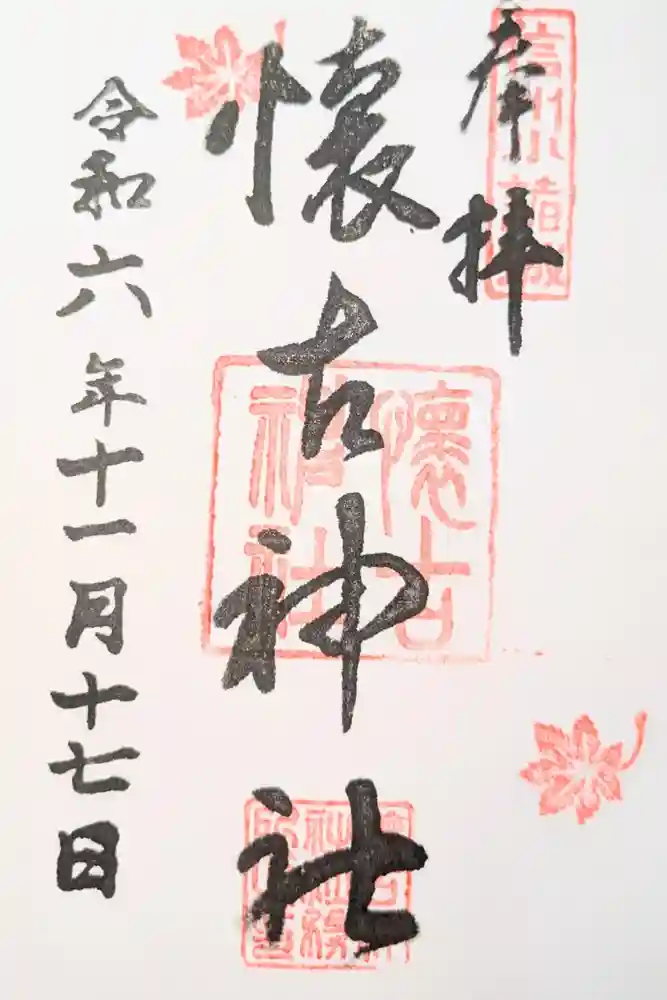 奉拝
信州小諸城
懐古神社
懐古神社
令和六年十一月十七日